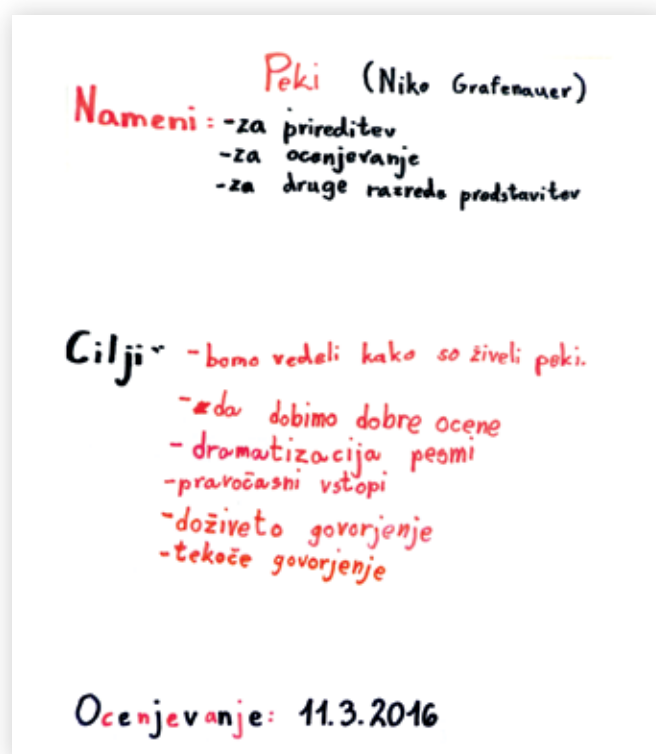 Peki (Niko Grafenauer)
Nameni: -za prireditev
-za ocenjevanje
-za druge razrede predstavitev
Cilji- -bomo vedeli kako so živeli peki.
-da dobimo dobre ocene
-dramatizacija pesmi
-pravočasni vstopi
-doživeto govorjenje
-tekoče govorjenje
Ocenjevanje: 11.3.2016